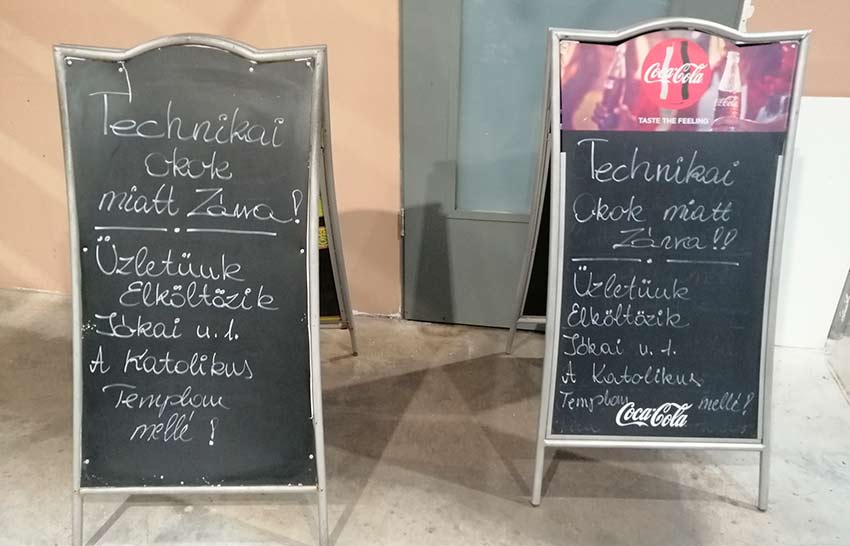 Technikai
okok
miatt Zárva!
Üzletünk
Elköltözik
Jókai u. 1.
A Katolikus
Templom
mellé!
Coca-Cola
Coca-Cola
TASTE THE FEELING
Technikai
Okok miatt
Zárva!!
Üzletünk
Elköltözik
Jókai u. 1.
A Katolikus
Templom mellé!
Coca-Cola